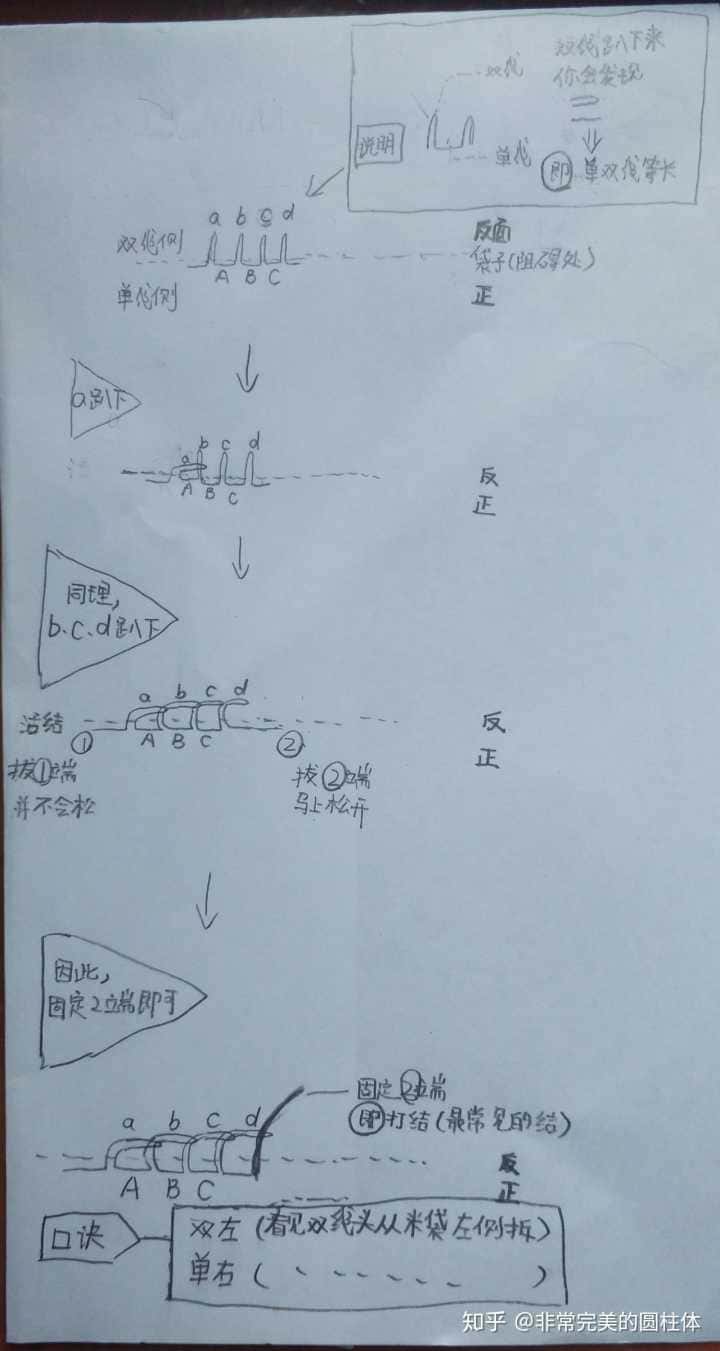 双线趴下来
你会发现
双线
说明
单线
即 单双线等长
a b c d
双线侧
反面
袋子(阻碍处)
A B C
单线侧
正
a趴下
b c d
a
A B C
反
正
同理,
b.c.d趴下
a b c d
活结
A B C
反
正
① ②
拔①端
并不会松
拔②端
马上松开
因此,
固定2端即可
固定②端
即打结(最常见的结)
a b c d
A B C
反
正
口诀
双左(看见双线头从米袋左侧拆)
单右( 、、、、、、 )
知乎 @非常完美的圆柱体